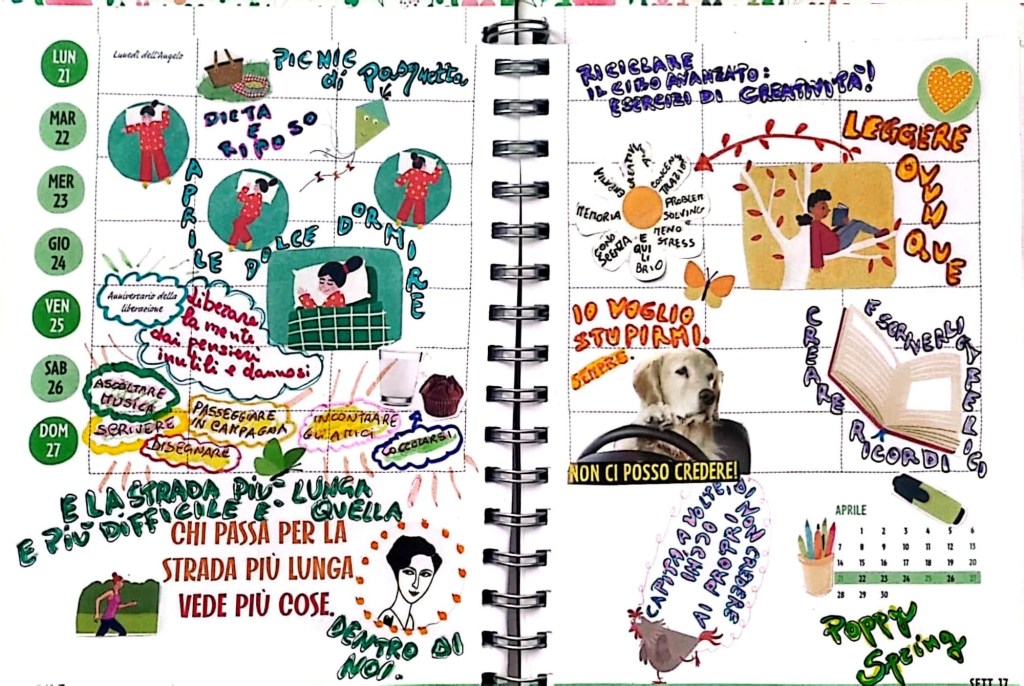 LUN
21
Lunedì dell'Angelo
PICNIC
di Pasquetta
MAR
22
DIETA
E
RIPOSO
MER
23
APRILE DOLCE DORMIRE
GIO
24
VEN
25
Anniversario della
liberazione
liberare
la mente
dai pensieri
inutili e dannosi
SAB
26
ASCOLTARE
MUSICA
SCRIVERE
PASSEGGIARE
IN CAMPAGNA
DISEGNARE
INCONTRARE
GLI AMICI
COCCOLARSI
DOM
27
E LA STRADA PIÙ LUNGA
E PIÙ DIFFICILE È QUELLA
CHI PASSA PER LA
STRADA PIÙ LUNGA
VEDE PIÙ COSE.
DENTRO DI
NOI.
RICICLARE
IL CIBO AVANZATO:
ESERCIZI DI CREATIVITÀ!
LEGGERE
OVUNQUE
CONCEN
TRAZIONE
PROBLEM
SOLVING
MENO
STRESS
E QUI
LIBRIO
CONO
SCENZA
MEMORIA
IO VOGLIO
STUPIRMI.
SEMPRE.
NON CI POSSO CREDERE!
CREARE
RICORDI
CAPITA, A VOLTE, DI
NON CREDERE
AI PROPRI
APRILE
1 2 3 4 5 6
7 8 9 10 11 12 13
14 15 16 17 18 19 20
21 22 23 24 25 26 27
28 29 30
Poppy
Spring
SETT. 17